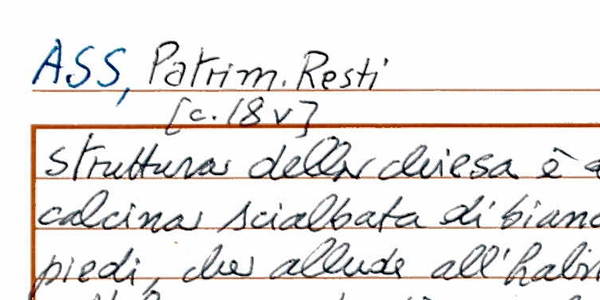 ASS, Patrim. Resti
[c. 18 v]
struttura della chiesa è
calcina scialbata di bianc
piedi, che allude all'habi